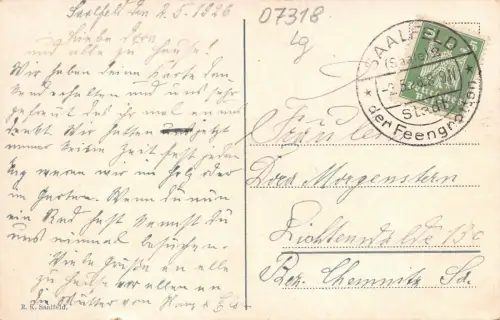 Saalfeld den 2.5.1926
07318
lg
Liebe Dora
und alle zu Hause!
Wir haben deine Karte dan
kend erhalten und uns sehr
gefreut das ihr mal an uns
denkt Wir hatten jetzt
immer keine Zeit fast jeden
Tag waren wir im Holz oder
im Garten. Wenn du nun
ein Rad hast kannst du
uns einmal besuchen.
Viele Grüße an alle
zu Hause vor allen an
die Mutter von
R. K. Saalfeld.
SAALFELD
(Saale)
Stadt
der Feengrotten
Fräulein
Dora Morgenstern
Lichtenwalde
Bez. Chemnitz Sa.